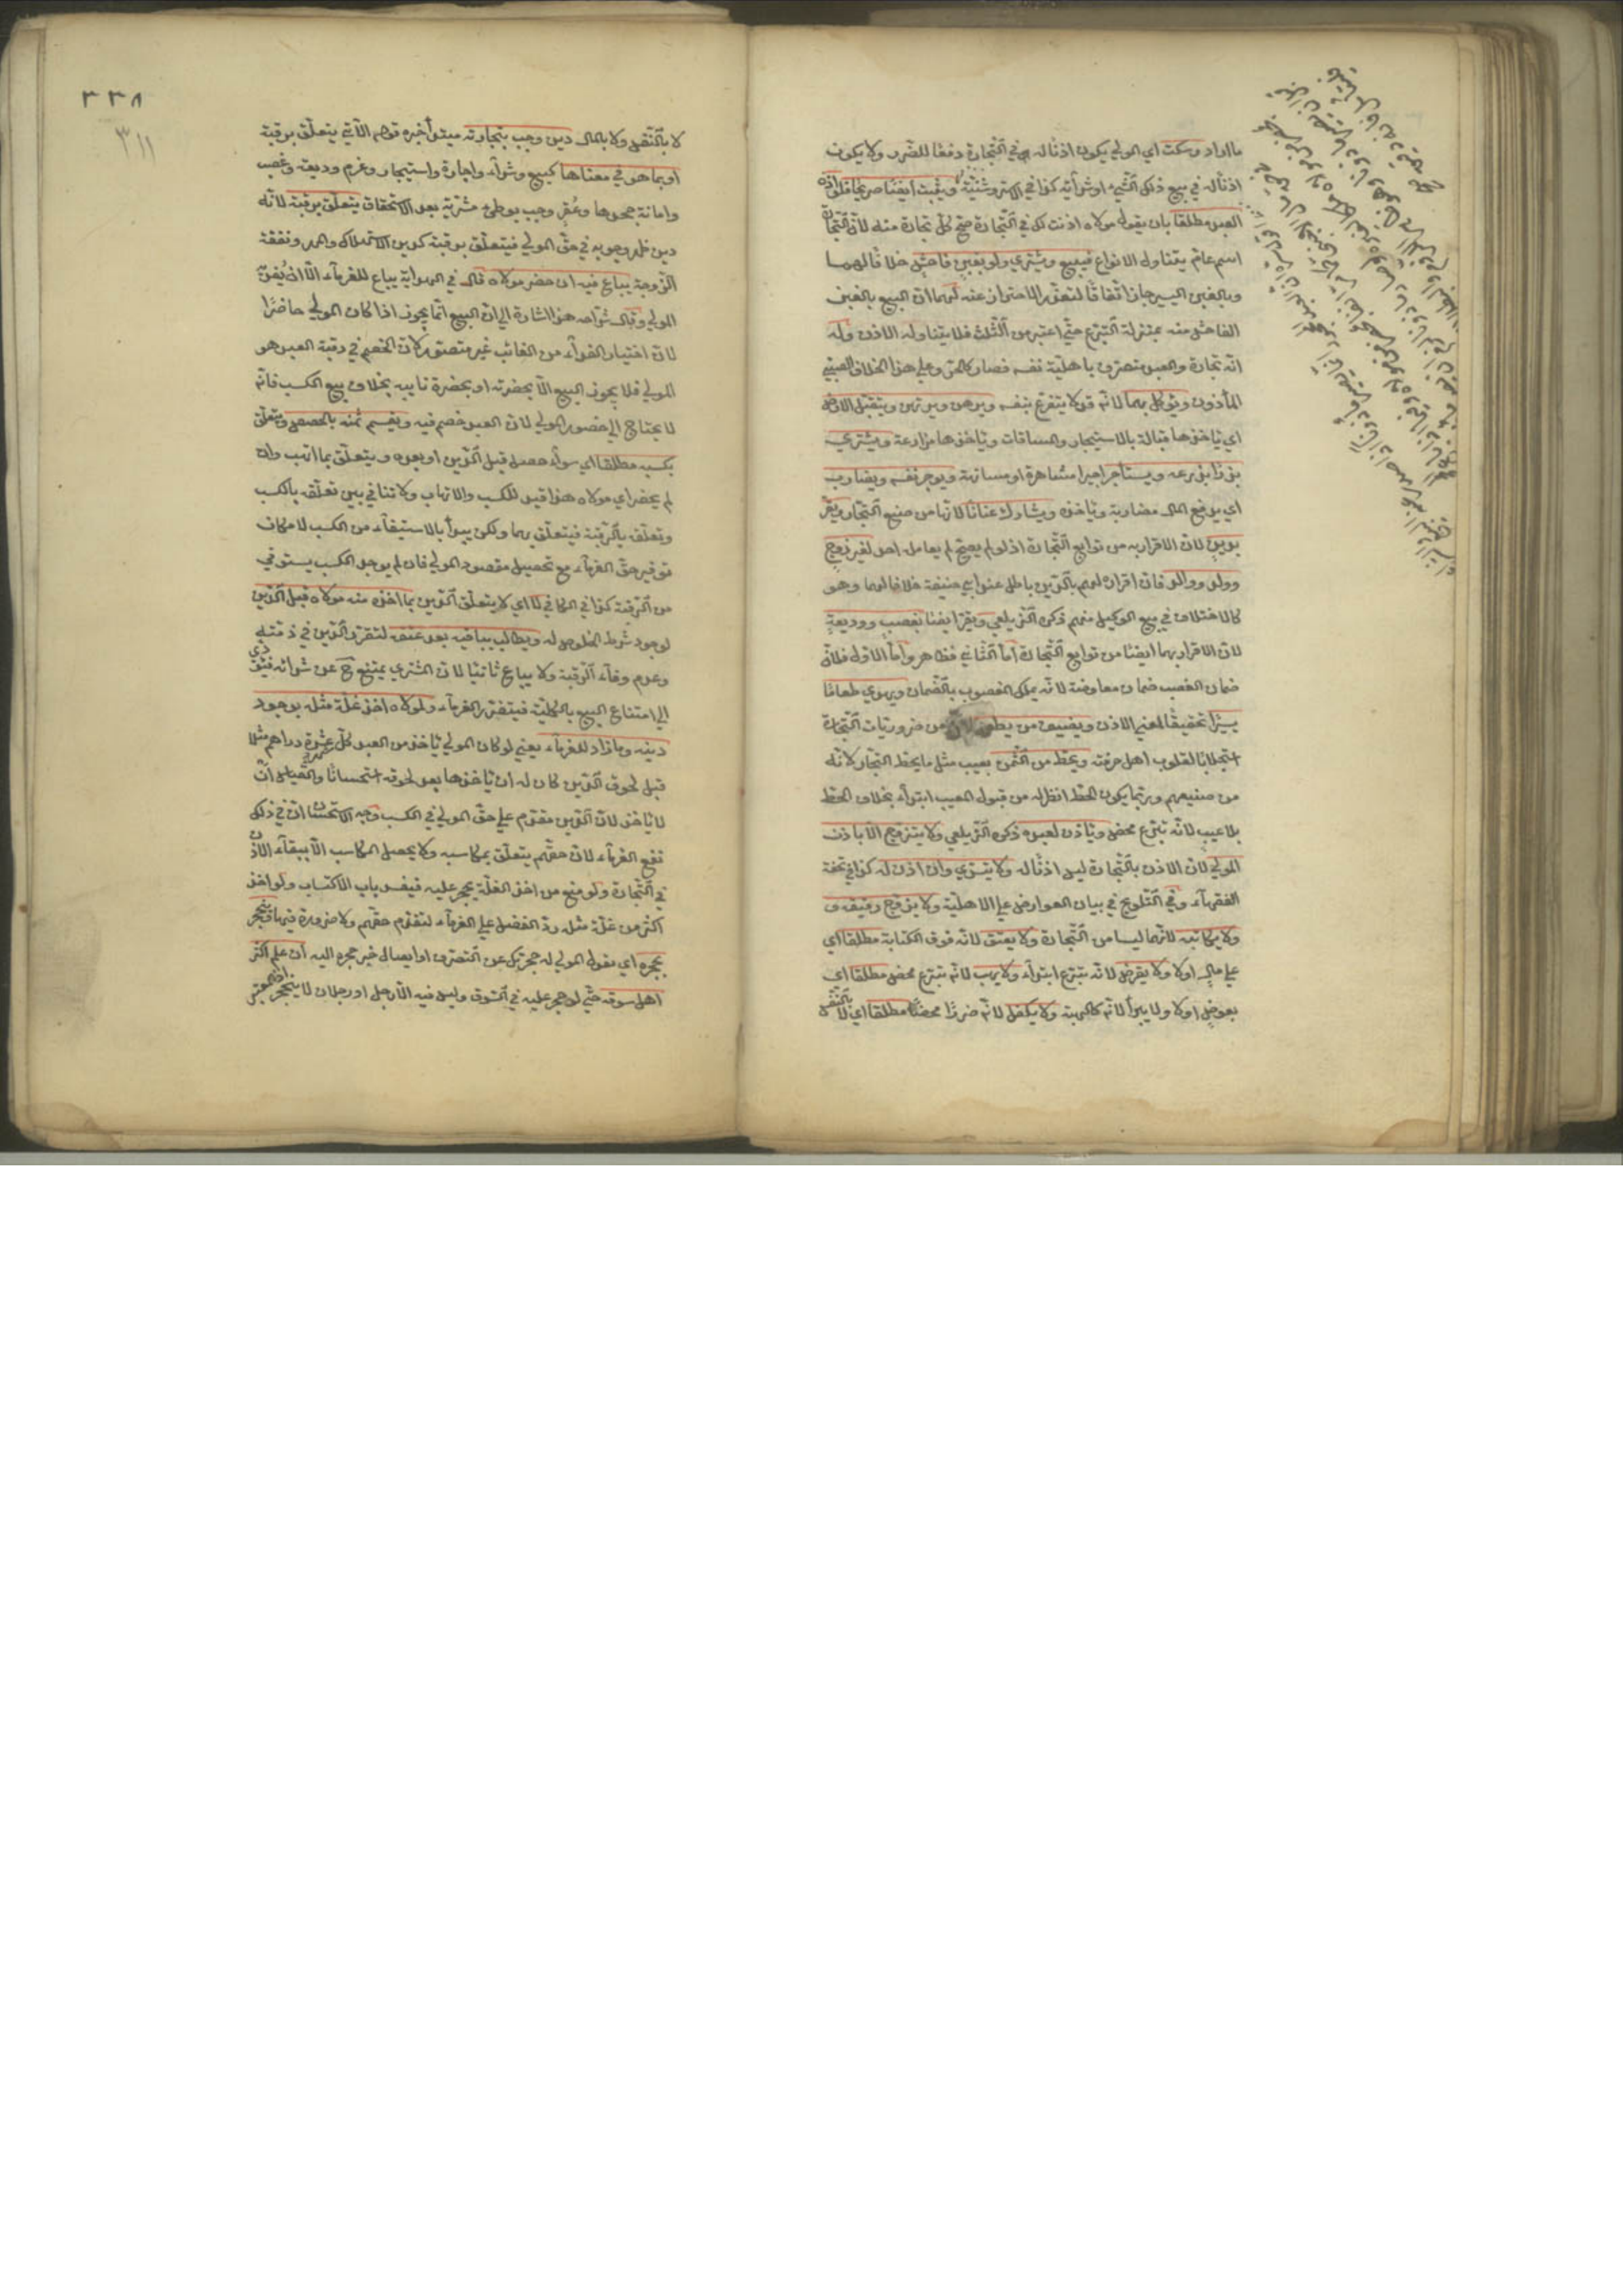 ما اراد وسكت اي المولي يكون اذنا له في التجارة دفعا للضرر ولا يكون
اذنا له في بيع ذلك الشيء او شرائه كذا في الاستروشنية ويثبت ايضا صريحا فلو اذن
العبد مطلقا بان يقول مولاه اذنت لك في التجارة صح كل تجارة منه لان التجارة
اسم عام يتناول الانواع فيبيع ويشتري ولو بغبن فاحش خلافا لهما
وبالغبن اليسير جاز اتفاقا لتعذر الاحتراز عنه لهما ان البيع بالغبن
الفاحش منه بمنزلة التبرع حتي اعتبر من الثلث فلا يتناوله الاذن وله
انه تجارة والعبد متصرف باهلية نفسه فصار كالحر وعلي هذا الخلاف الصبي
المأذون ويوكل بهما لانه قد لا يتفرغ بنفسه ويرهن ويرتهن ويتقبل الارض
اي ياخذها قبالة بالاستيجار والمساقات وياخذها مزارعة ويشتري
بذرا يزرعه ويستأجر اجيرا مشاهرة او مسانهة ويوجر نفسه ويضارب
اي يدفع المال مضاربة وياخذه ويشارك عنانا لانها من صنيع التجار ويقر
بدين لان الاقرار به من توابع التجارة اذ لو لم يصح لم يعامله احد لغير زوج
وولد ووالد فان اقراره لهم بالدين باطل عند ابي حنيفة خلافا لهما وهو
كالاختلاف في بيع الوكيل منهم ذكره الزيلعي ويقر ايضا بغصب ووديعة
لان الاقرار بهما ايضا من توابع التجارة اما الثاني فظاهر واما الاول فلان
ضمان الغصب ضمان معاوضة لانه يملك المغصوب بالضمان ويهدي طعاما
يسيرا تحقيقا لمعني الاذن ويضيف من يطعمه لانه من ضروريات التجارة
استجلابا لقلوب اهل حرفته ويحط من الثمن بعيب مثل ما يحط التجار لانه
من صنيعهم وربما يكون الحط انظر له من قبول المعيب ابتداء بخلاف الحط
بلا عيب لانه تبرع محض وياذن لعبده ذكره الزيلعي ولا يتزوج الا باذن
المولي لان الاذن بالتجارة ليس اذنا له ولا يتسري وان اذن له كذا في تحفة
الفقهاء وفي التلويح في بيان العوارض علي الاهلية ولا يزوج رقيقه و
ولا يكاتبه لانهما ليسا من التجارة ولا يعتق لانه فوق الكتابة مطلقا اي
علي مال اولا ولا يقرض لانه تبرع ابتداء ولا يهب لانه تبرع محض مطلقا اي
بعوض اولا ولا يبرأ لانه كالهبة ولا يكفل لانه ضرر محض مطلقا اي لا بالنفس
٣٣٨
٣١١
لا بالنفس ولا بالمال دين وجب بتجارته مبتدأ خبره قوله الآتي يتعلق برقبته
او بما هو في معناها كبيع وشراء واجارة واستيجار وغرم وديعة وغصب
وامانة جحدها وعقر وجب بوطئ مشرية بعد الاستحقاق يتعلق برقبته لانه
دين ظهر وجوبه في حق المولي فيتعلق برقبته كدين الاستهلاك والمهر ونفقة
الزوجة يباع فيه ان حضر مولاه قال في الهداية يباع للغرماء الا ان يفديه
المولي وقال شراحه هذا اشارة الي ان البيع انما يجوز اذا كان المولي حاضرا
لان اختيار الفداء من الغائب غير متصور لان الخصم في رقبة العبد هو
المولي فلا يجوز البيع الا بحضرته او بحضرة نايبه بخلاف بيع الكسب فانه
لا يحتاج الي حضور المولي لان العبد خصم فيه ويقسم ثمنه بالحصص ويتعلق
بكسبه مطلقا اي سواء حصل قبل الدين او بعده ويتعلق بما اتهب وان
لم يحضر اي مولاه هذا قيد للكسب والاتهاب ولا تنافي بين تعلقه بالكسب
وتعلقه بالرقبة فيتعلق بهما ولكن يبدأ بالاستيفاء من الكسب لامكان
توفير حق الغرماء مع تحصيل مقصود المولي فان لم يوجد الكسب يستوفي
من الرقبة كذا في الكافي لا اي لا يتعلق الدين بما اخذه منه مولاه قبل الدين
لوجود شرط الخلوص له ويطالب بباقيه بعد عتقه لتقرر الدين في ذمته
وعدم وفاء الرقبة ولا يباع ثانيا لان المشتري يمتنع ح عن شرائه فيؤدي
الي امتناع البيع بالكلية فيتضرر الغرماء ولمولاه اخذ غلة مثله بوجود
دينه وما زاد للغرماء يعني لو كان المولي ياخذ من العبد كل شهر عشرة دراهم مثلا
قبل لحوق الدين كان له ان ياخذها بعد لحوقه استحسانا والقياس ان
لا ياخذ لان الدين مقدم علي حق المولي في الكسب وجه الاستحسان ان في ذلك
نفع الغرماء لان حقهم يتعلق بمكاسبه ولا يحصل المكاسب الا ببقاء الاذن
في التجارة ولو منع من اخذ الغلة يحجر عليه فينسد باب الاكتساب ولو اخذ
اكثر من غلة مثله رد الفضل علي الغرماء لتقدم حقهم ولا ضرورة فيها وينحجر
بحجره اي بقول المولي له حجرتك عن التصرف او ايصال خبر حجره اليه ان علم اكثر
اهل سوقه حتي لو حجر عليه في السوق وليس فيه الا رجل او رجلان لا ينحجر اذ المعتبر